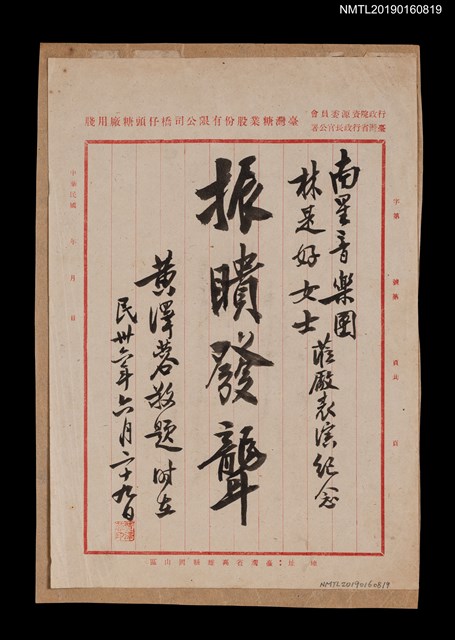 NMTL20190160819
行政院資源委員會
臺灣省行政長官公署
臺灣糖業股份有限公司橋仔頭糖廠用牋
南星音樂團
林是好女士
蒞廠表演紀念
振聵發聾
黃澤蓉敬題 時在
民卅六年六月二十九日
中華民國 年 月 日
字第 號第 頁共 頁
NMTL20190160819